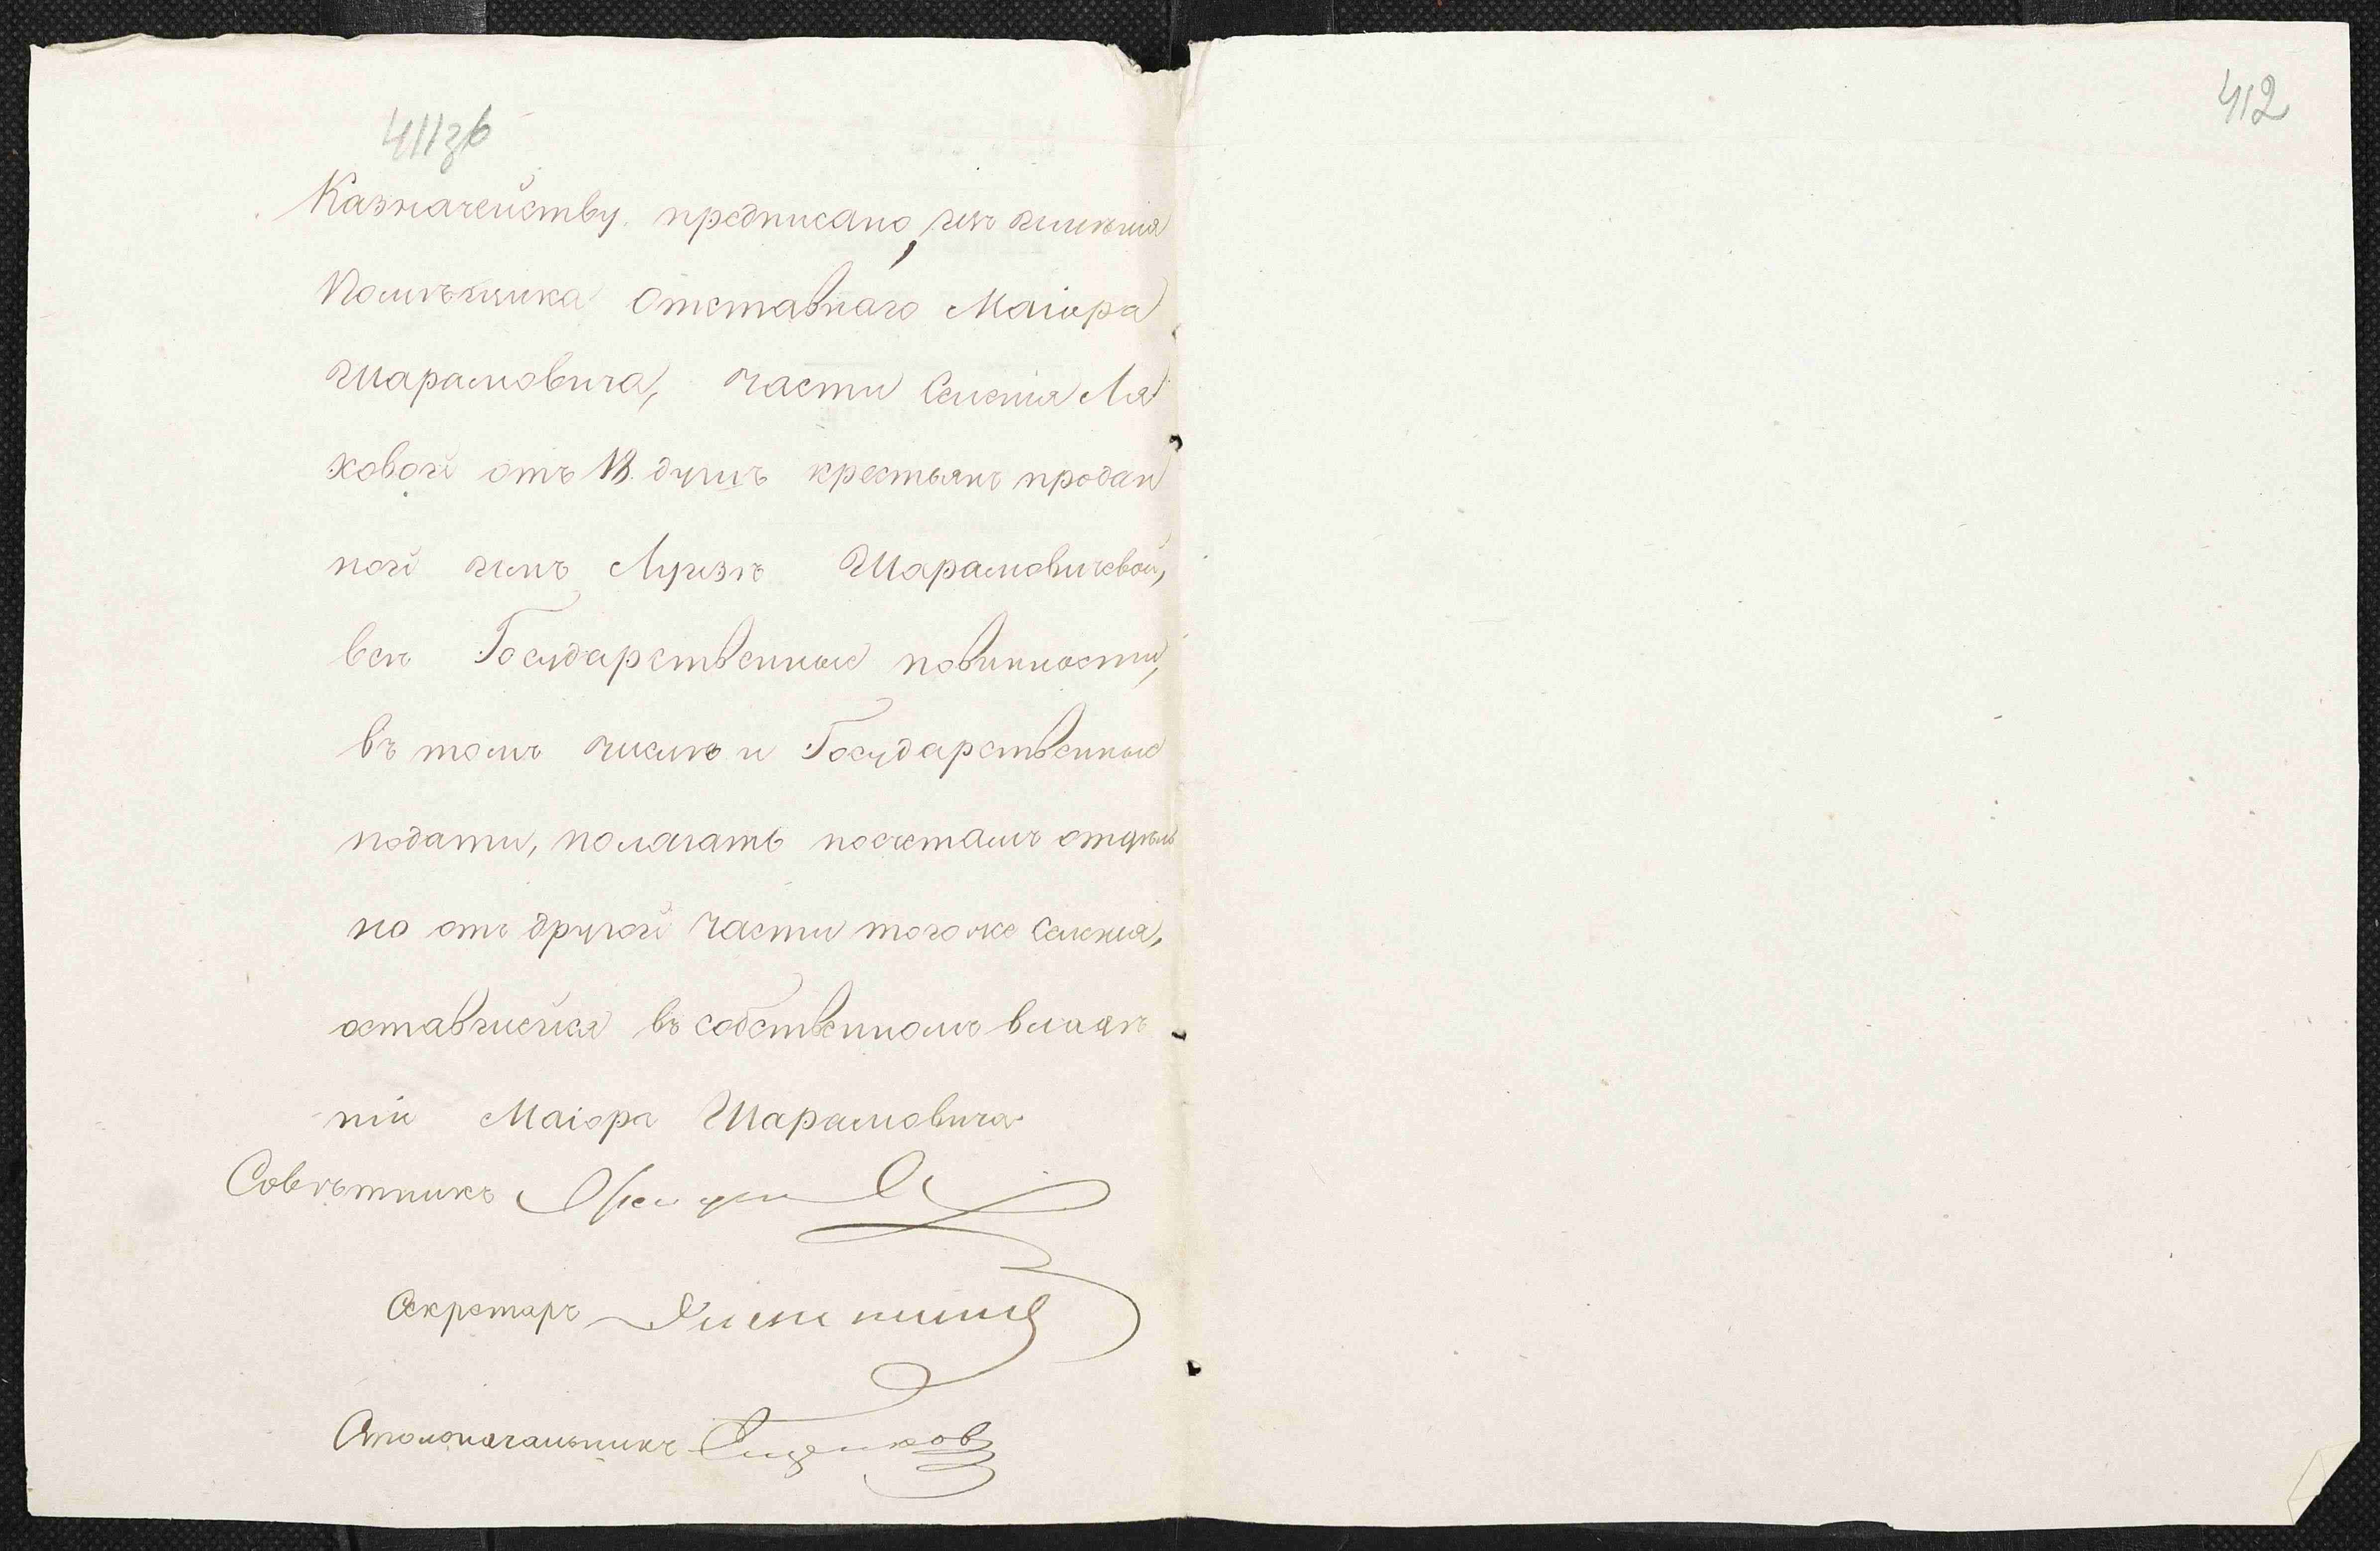 411зв
412
Казначейству предписано, изъ имѣнія
Помѣщика Отставнаго Маіора
Шарамовича, части Селенія Ля
ховой отъ 18. душъ крестьянъ продан
ной имъ Луизѣ Шарамовичевой,
всѣ Государственные повинности,
въ томъ числѣ и Государственные
подати, полагать посчетамъ отдѣль
но отъ другой части того же Селенія,
оставшейся въ собственномъ владѣ
ніи Маіора Шарамовича
Совѣтникъ
Секретарь
Столоначальникъ